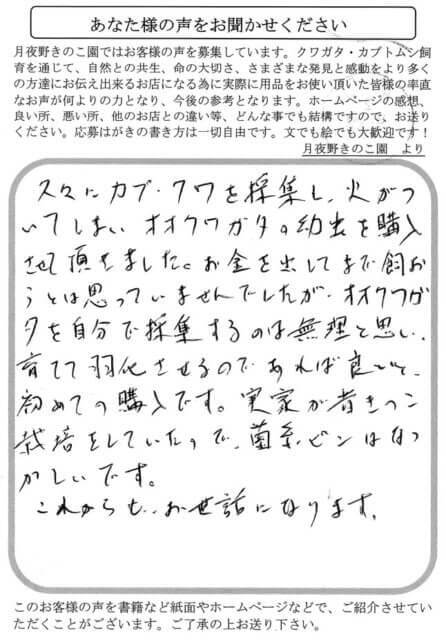 あなた様の声をお聞かせください
月夜野きのこ園ではお客様の声を募集しています。クワガタ・カブトムシ飼
育を通じて、自然との共生、命の大切さ、さまざまな発見と感動をより多く
の方達にお伝え出来るお店になる為に実際に用品をお使い頂いた皆様の率直
なお声が何よりの力となり、今後の参考となります。ホームページの感想、
良い所、悪い所、他のお店との違い等、どんな事でも結構ですので、お送り
ください。応募はがきの書き方は一切自由です。文でも絵でも大歓迎です！
月夜野きのこ園　より
久々にカブ・クワを採集し、火がつ
いてしまい オオクワガタの幼虫を購入
させて頂きました。お金を出してまで飼お
うとは思っていませんでしたが、オオクワガ
タを自分で採集するのは無理と思い、
育てて羽化させるのであれば良いと、
初めての購入です。実家が昔きのこ
栽培をしていたので、菌糸ビンはなつ
かしいです。
これからも、お世話になります。
このお客様の声を書籍など紙面やホームページなどで、ご紹介させてい
ただくことがございます。ご了承の上お送り下さい。